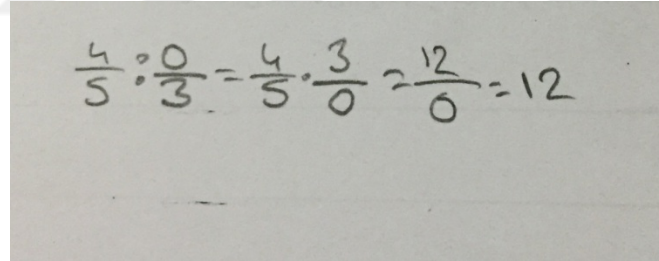 4/5 : 0/3 = 4/5 · 3/0 = 12/0 = 12